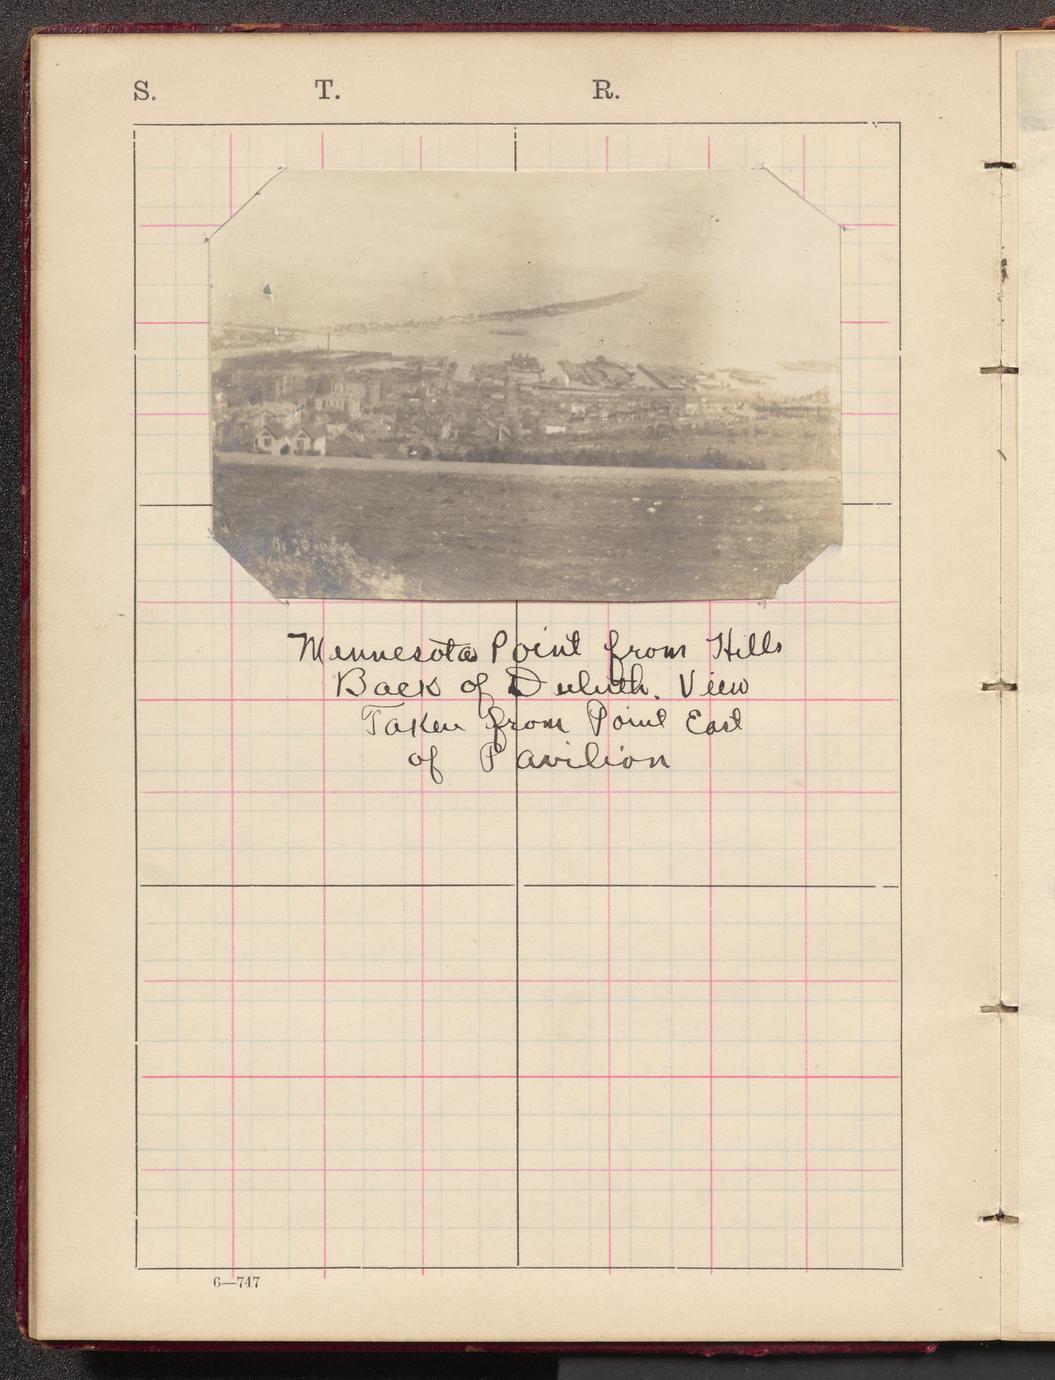 S. T. R.
Minnesota Point from Hills
Back of Duluth. View
Taken from Point East
of Pavilion
6—747